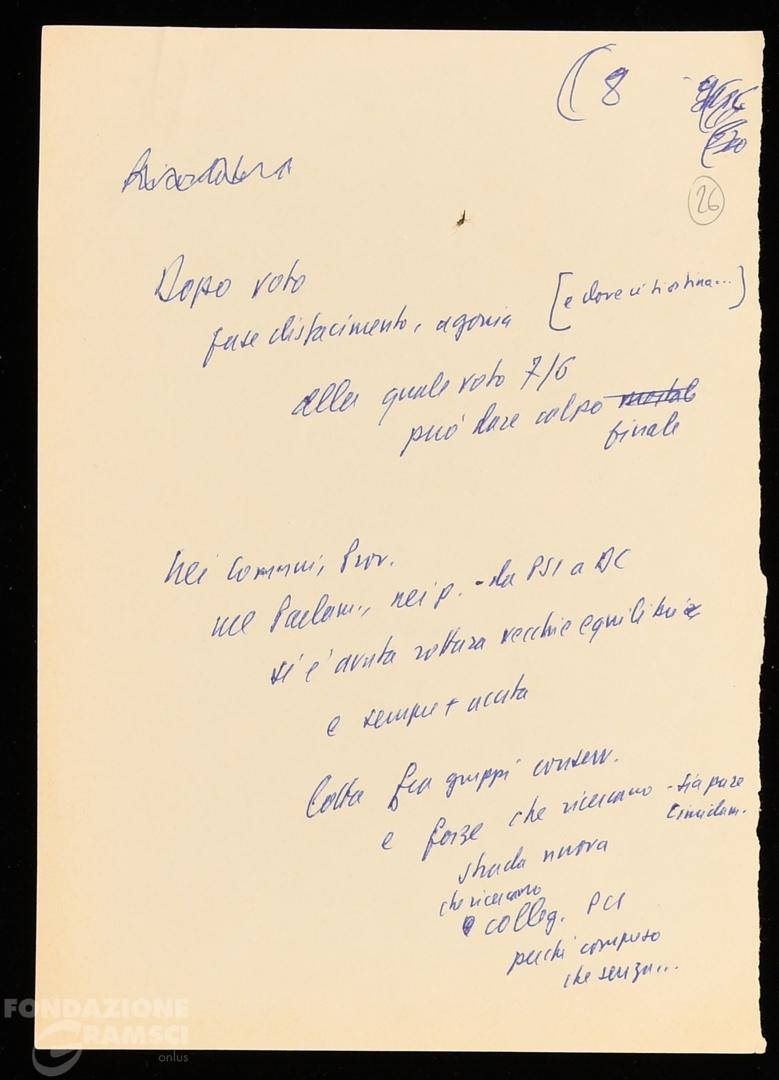 ( 8
26
Dopo voto
fase disfacimento, agonia [e dove ci si ostina...]
alla quale voto 7/6
può dare colpo mortale
finale
Nei Comuni, Prov.
nel Parlam., nei p. - da PSI a DC
si è avuta rottura vecchi equilibri
e sempre + acuta
Lotta fra gruppi conserv.
e forze che ricercano - sia pure
timidam.
strada nuova
che ricercano
colleg. PCI
perché compreso
che senza...
FONDAZIONE
GRAMSCI
onlus